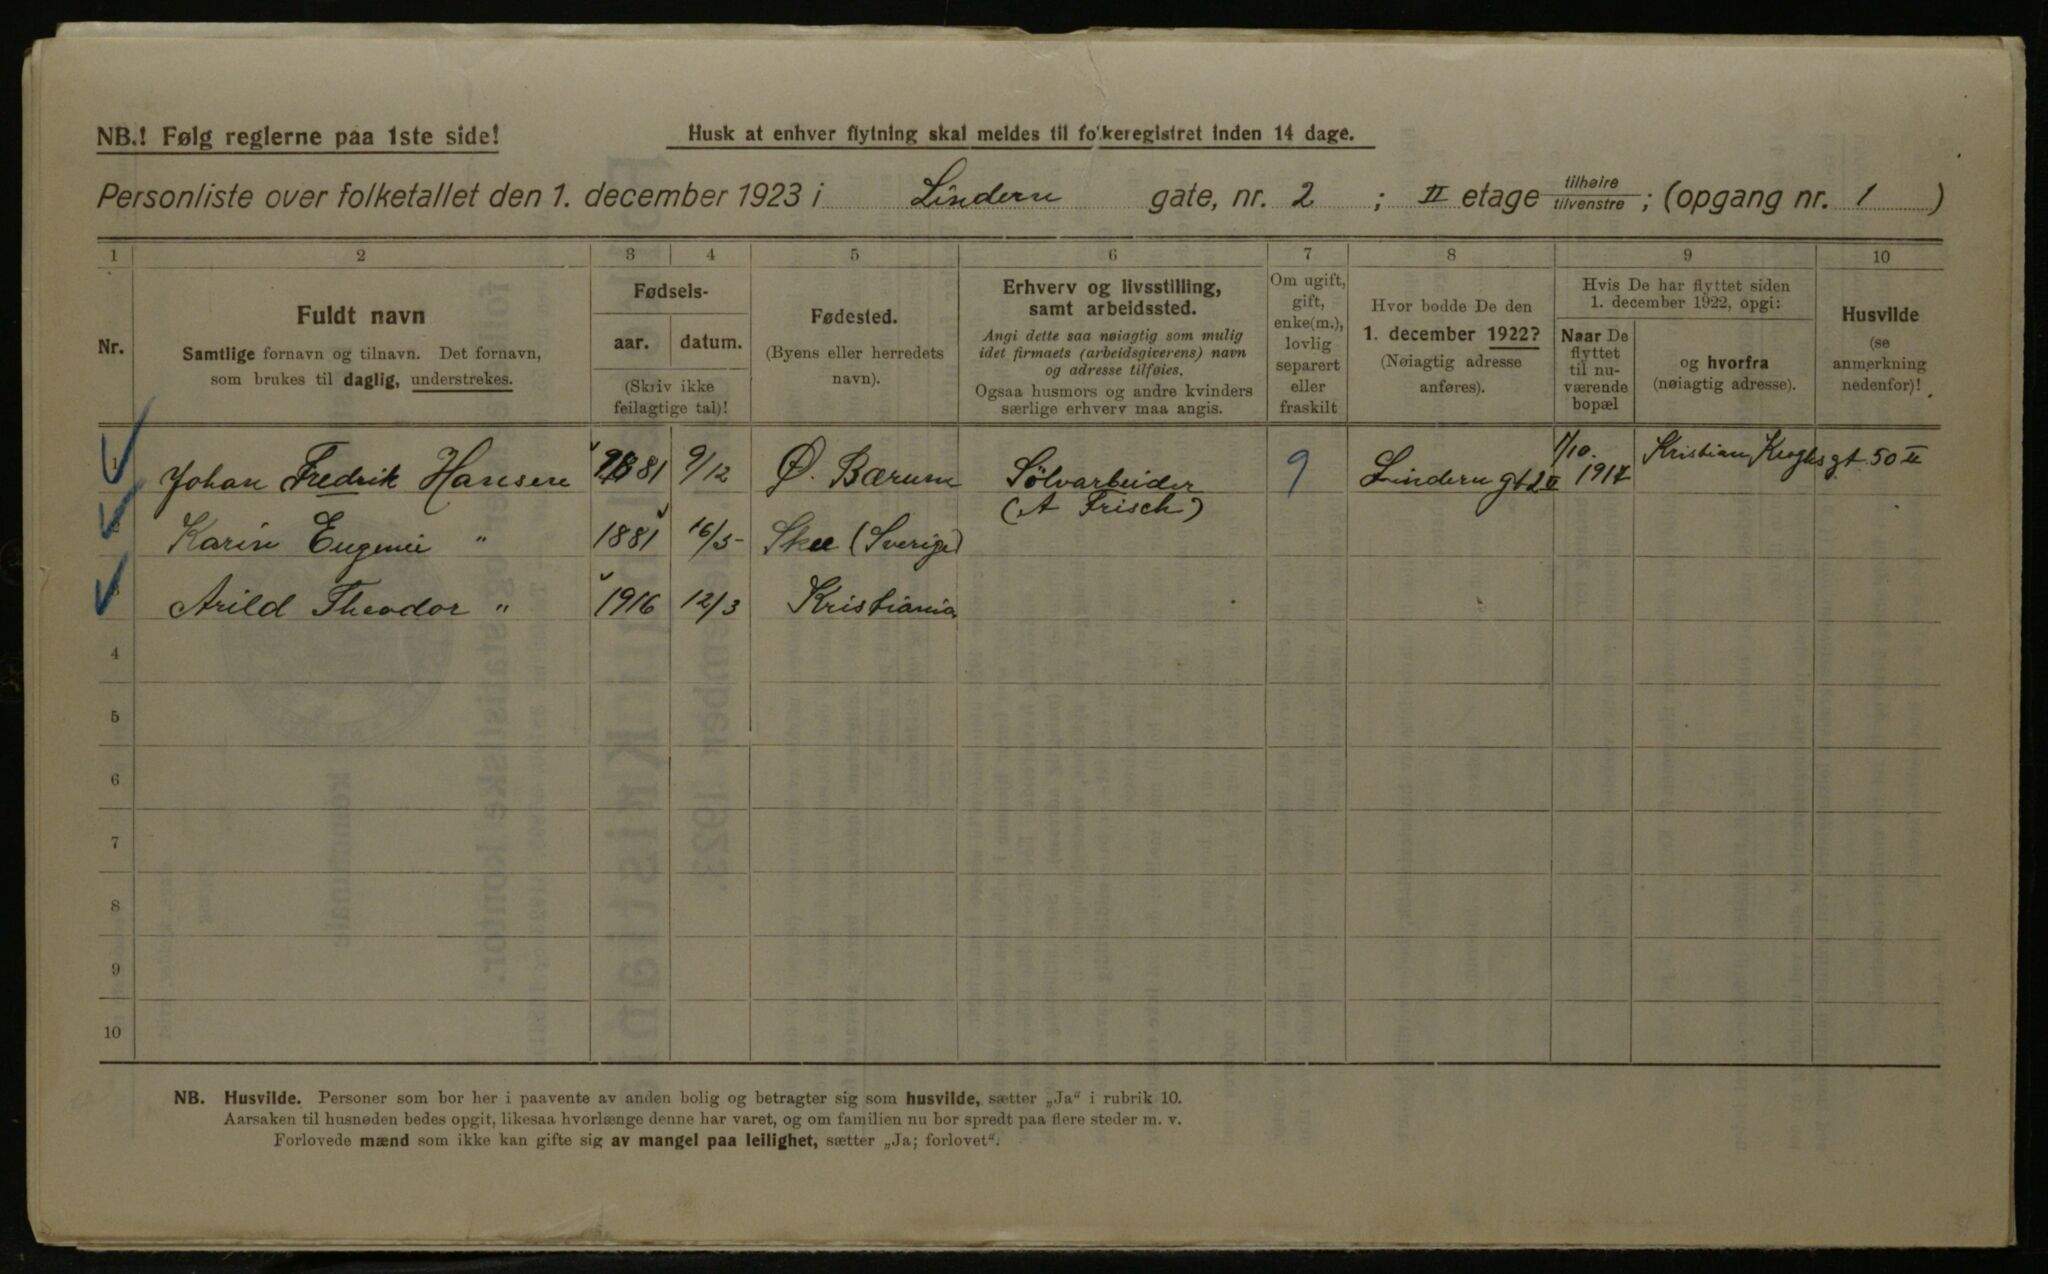 NB.! Følg reglerne paa 1ste side!
Husk at enhver flytning skal meldes til folkeregistret inden 14 dage.
Personliste over folketallet den 1. december 1923 i Lindern gate, nr. 2 ; II etage tilhøire tilvenstre ; (opgang nr. 1 )
1 2 3 4 5 6 7 8 9 10
Nr.
Fuldt navn
Samtlige fornavn og tilnavn. Det fornavn,
som brukes til daglig, understrekes.
Fødsels-
aar. datum.
(Skriv ikke
feilagtige tal)!
Fødested.
(Byens eller herredets
navn).
Erhverv og livsstilling,
samt arbeidssted.
Angi dette saa nøiagtig som mulig
idet firmaets (arbeidsgiverens) navn
og adresse tilføies.
Ogsaa husmors og andre kvinders
særlige erhverv maa angis.
Om ugift,
gift,
enke(m.),
lovlig
separert
eller
fraskilt
Hvor bodde De den
1. december 1922?
(Nøiagtig adresse
anføres).
Hvis De har flyttet siden
1. december 1922, opgi:
Naar De
flyttet
til nu-
værende
bopæl
og hvorfra
(nøiagtig adresse).
Husvilde
(se
anmerkning
nedenfor)!
1 Johan Fredrik Hansen 81 9/12 Ø. Bærum Sölvarbeider g Lindern gt 2 II 1/10. 1917 Kristian Kroghs gt. 50 II
(A Frisch)
Karin Eugenie " 1881 16/5 Skee (Sverige)
Arild Theodor " 1916 12/3 Kristiania
4
5
6
7
8
9
10
NB. Husvilde. Personer som bor her i paavente av anden bolig og betragter sig som husvilde, sætter „Ja“ i rubrik 10.
Aarsaken til husnøden bedes opgit, likesaa hvorlænge denne har varet, og om familien nu bor spredt paa flere steder m. v.
Forlovede mænd som ikke kan gifte sig av mangel paa leilighet, sætter „Ja; forlovet“.